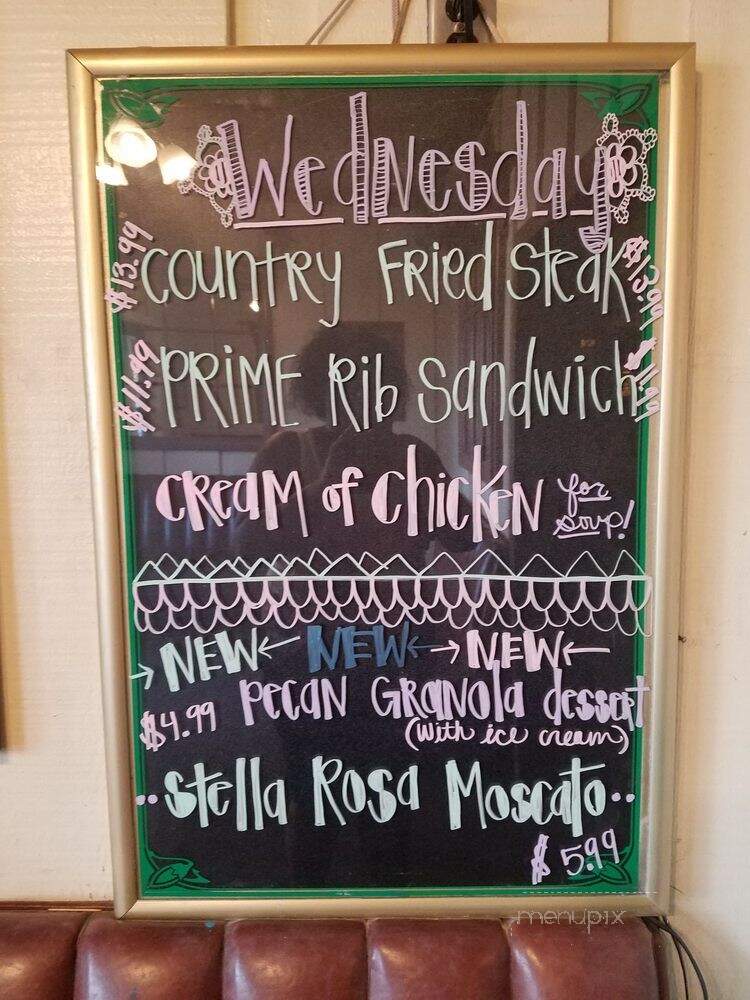 Wednesday
$13.99 Country Fried Steak $13.99
$11.99 PRIME Rib Sandwich $11.99
Cream of Chicken for soup!
NEW NEW NEW
$4.99 Pecan Granola dessert
(with ice cream)
Stella Rosa Moscato
$5.99
menupix